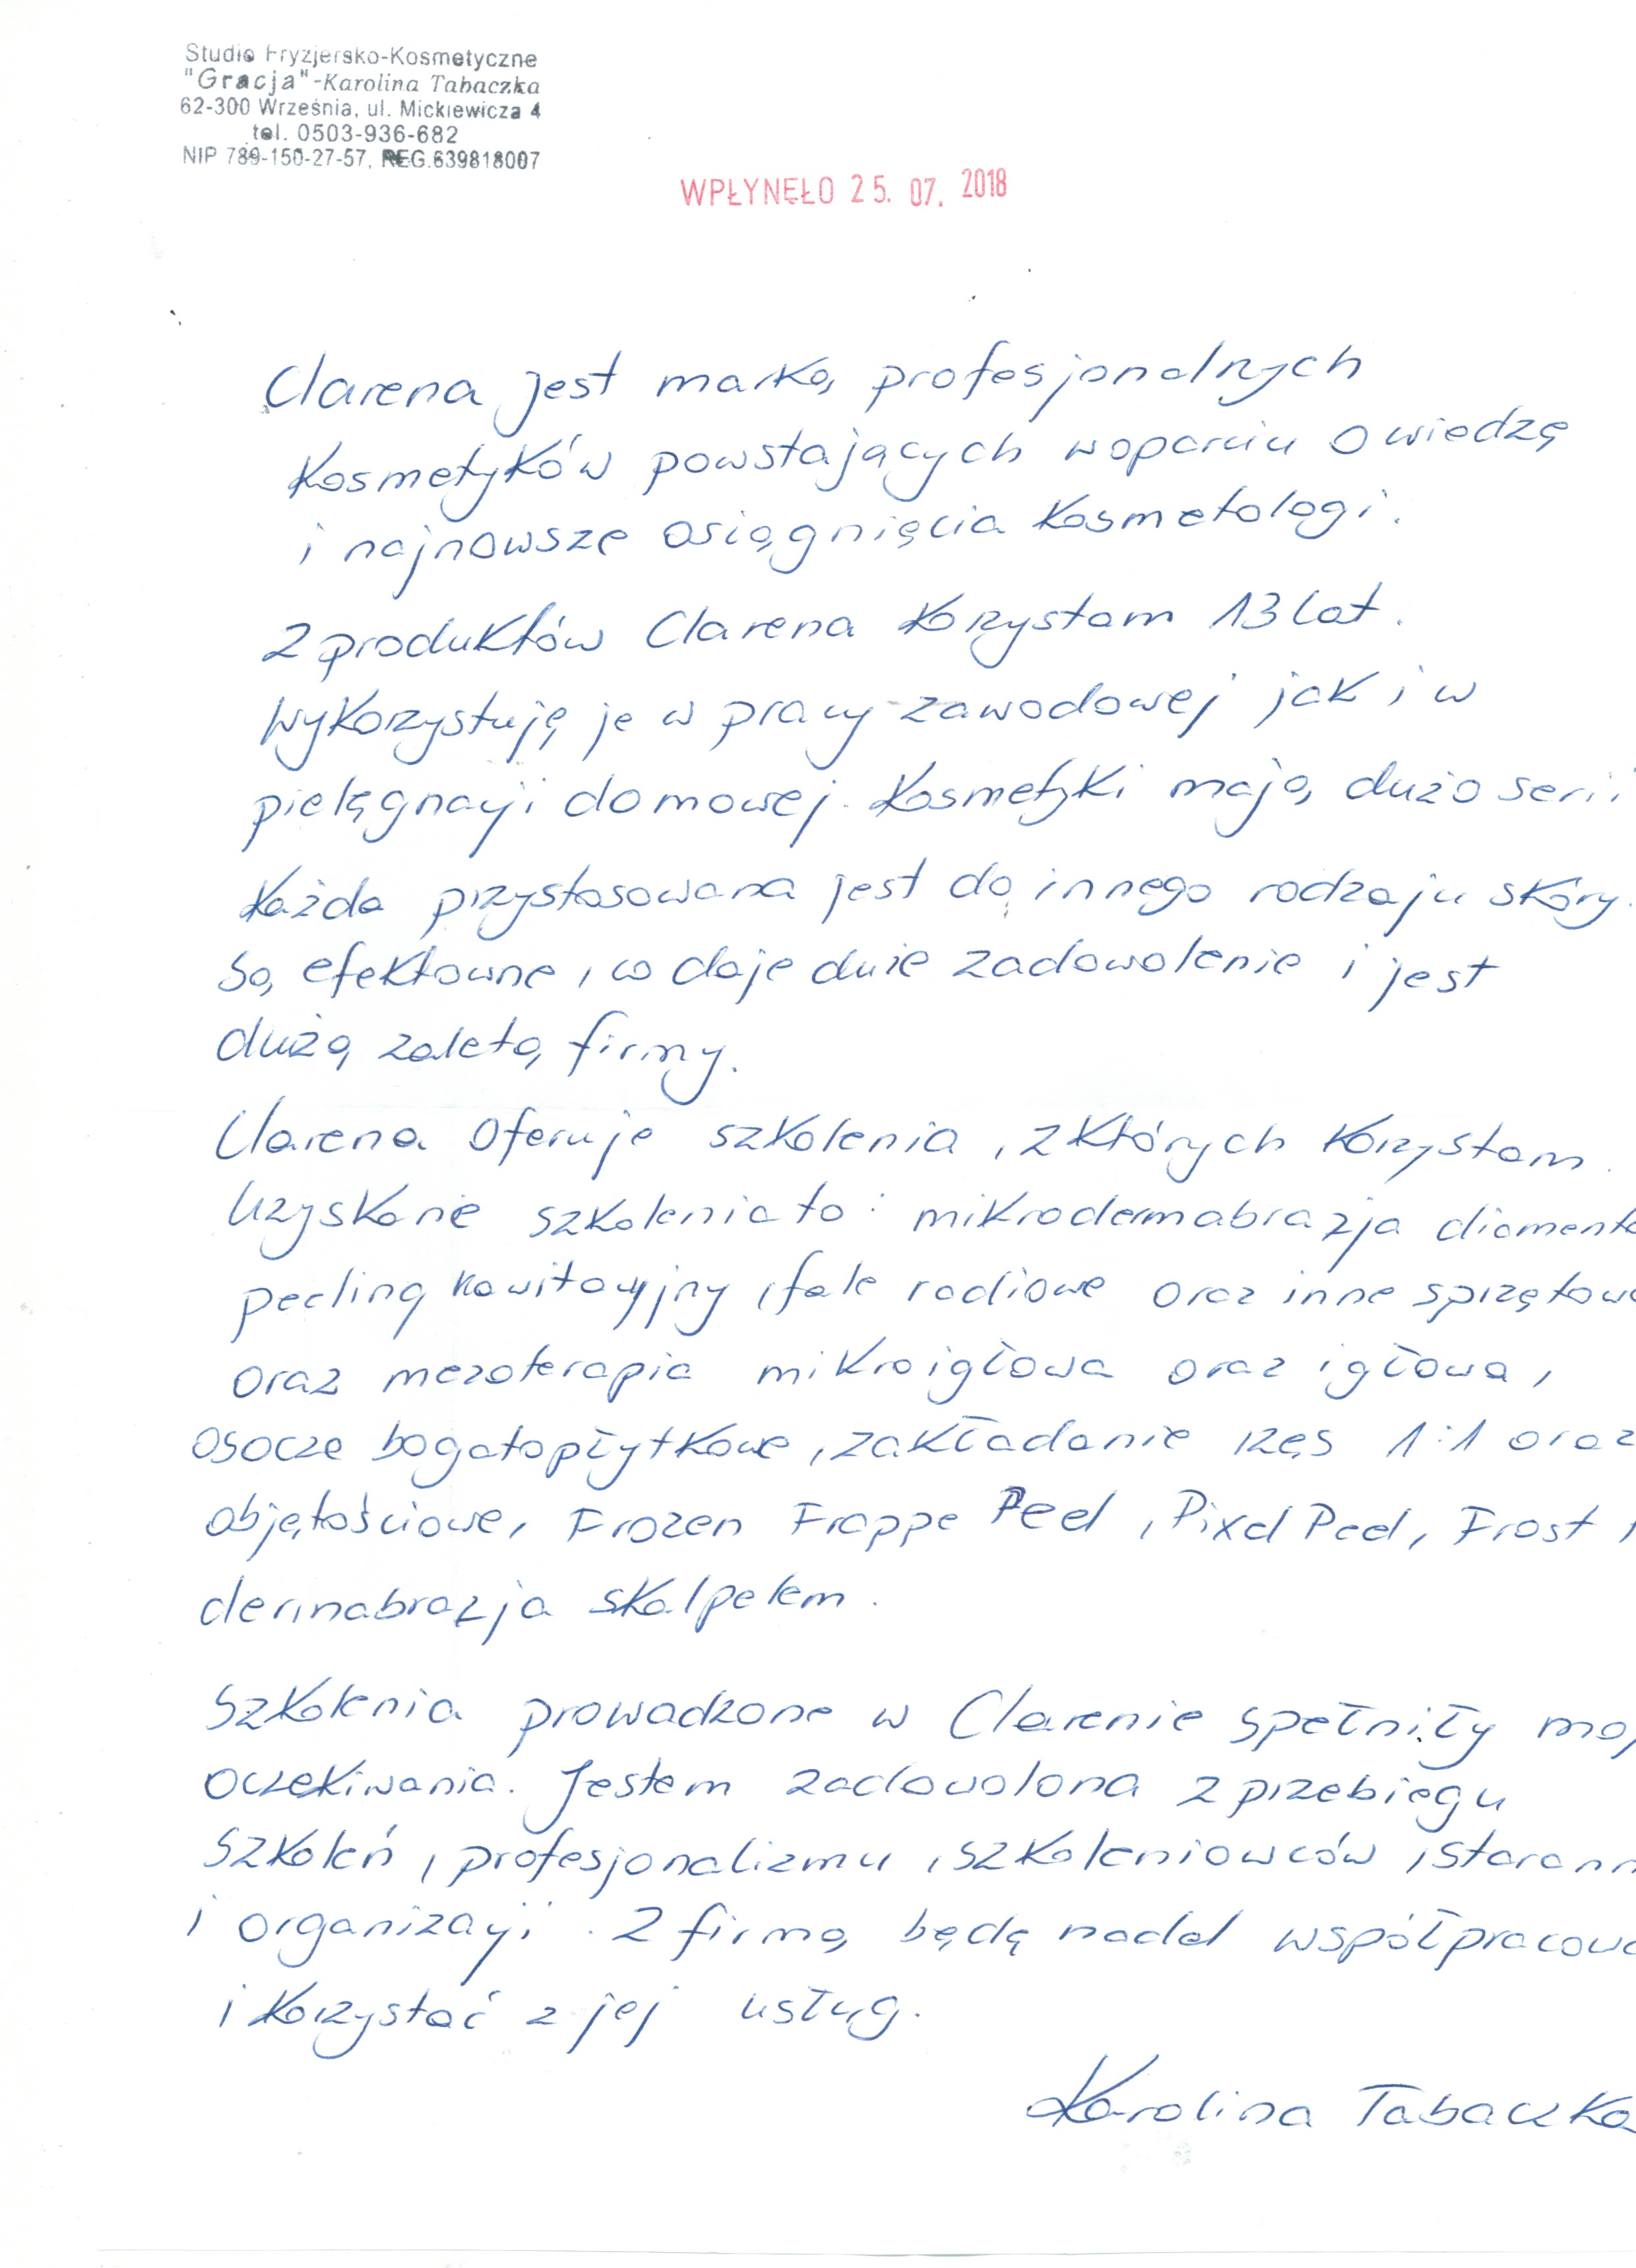 Studio Fryzjersko-Kosmetyczne
"Gracja"-Karolina Tabaczka
62-300 Września, ul. Mickiewicza 4
tel. 0503-936-682
NIP 789-150-27-57, REG.639818007
WPŁYNĘŁO 25. 07. 2018
Clarena jest marką profesjonalnych
kosmetyków powstających woparciu o wiedzę
i najnowsze osiągnięcia kosmetologi.
Z produktów Clarena korzystam 13 lat.
Wykorzystuję je w pracy zawodowej jak i w
pielęgnacji domowej. Kosmetyki mają dużo serii
każda przystosowana jest do innego rodzaju skóry.
Są efektowne, co daje duże zadowolenie i jest
dużą zaletą firmy.
Clarena oferuje szkolenia, z których korzystam.
Uzyskane szkolenia to: mikrodermabrazja diament
peeling kawitacyjny, fale radiowe oraz inne sprzętow
oraz mezoterapia mikroigłowa oraz igłowa,
osocze bogatopłytkowe, zakładanie rzęs 1:1 oraz
objętościowe, Frozen Frappe Peel, Pixel Peel, Frost
dermabrazja skalpelem.
Szkolenia prowadzone w Clarenie spełniły moj
oczekiwania. Jestem zadowolona z przebiegu
szkoleń, profesjonalizmu, szkoleniowców, starann
i organizacji. Z firmą będę nadal współpracowa
i korzystać z jej usług.
Karolina Tabaczka